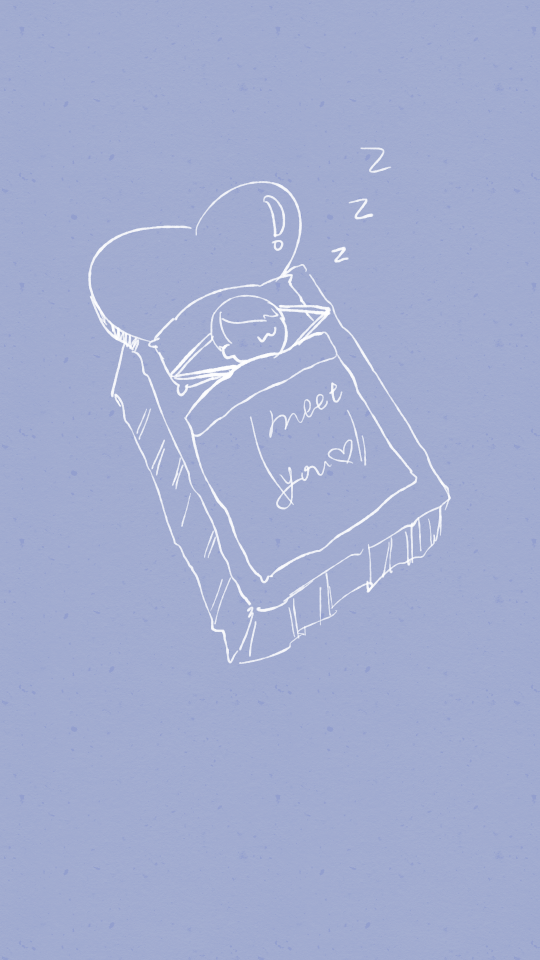 z
z
z
meet
you♡